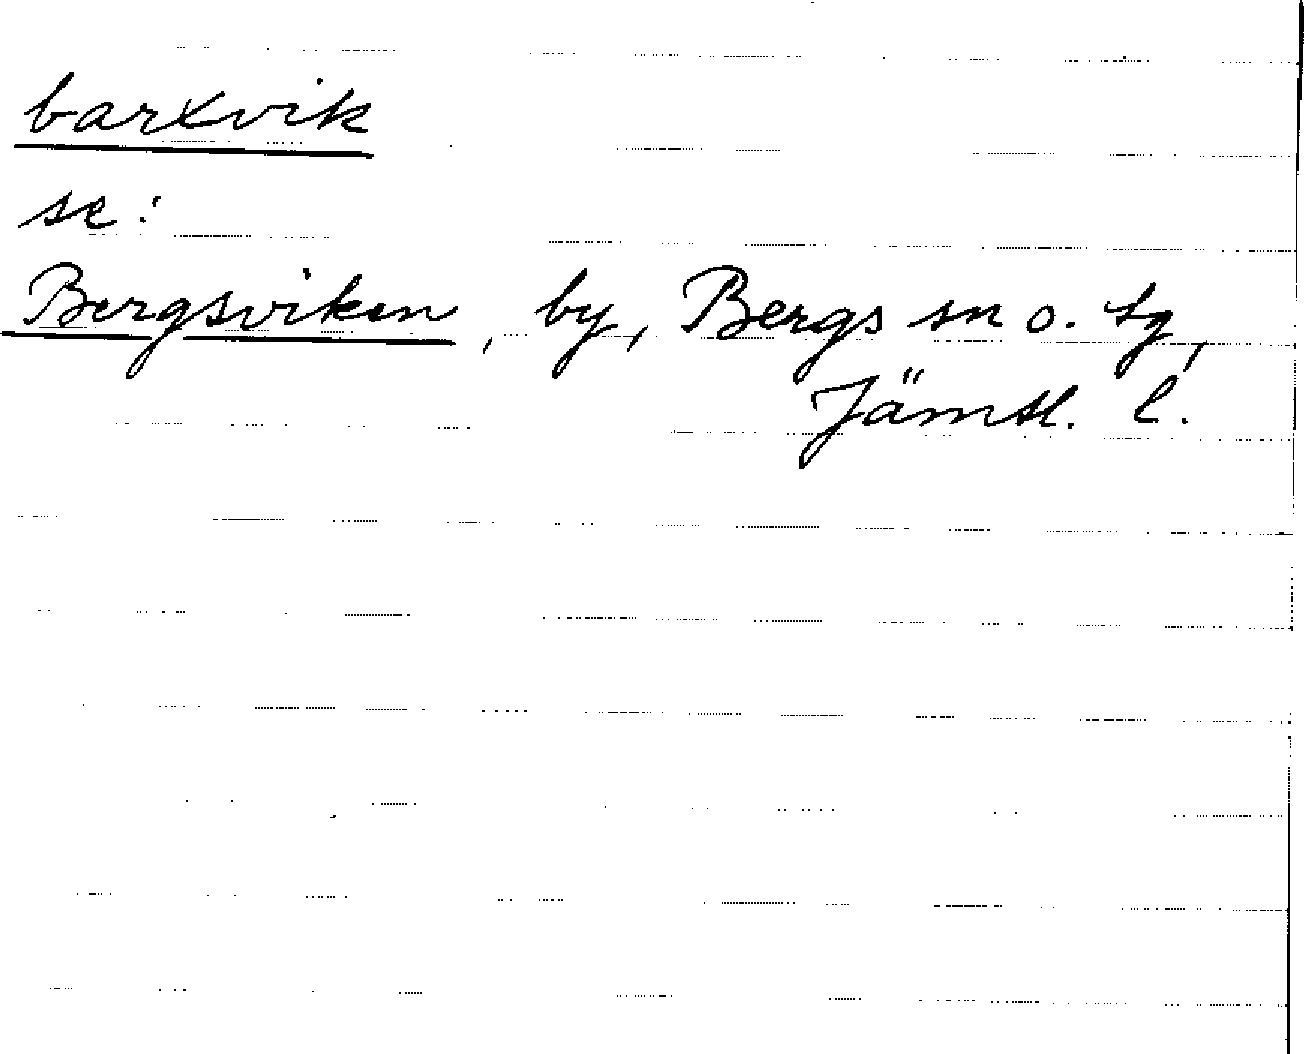 barxvik
se:
Bergsviken, by, Bergs sn o. tg,
Jämtl. l.